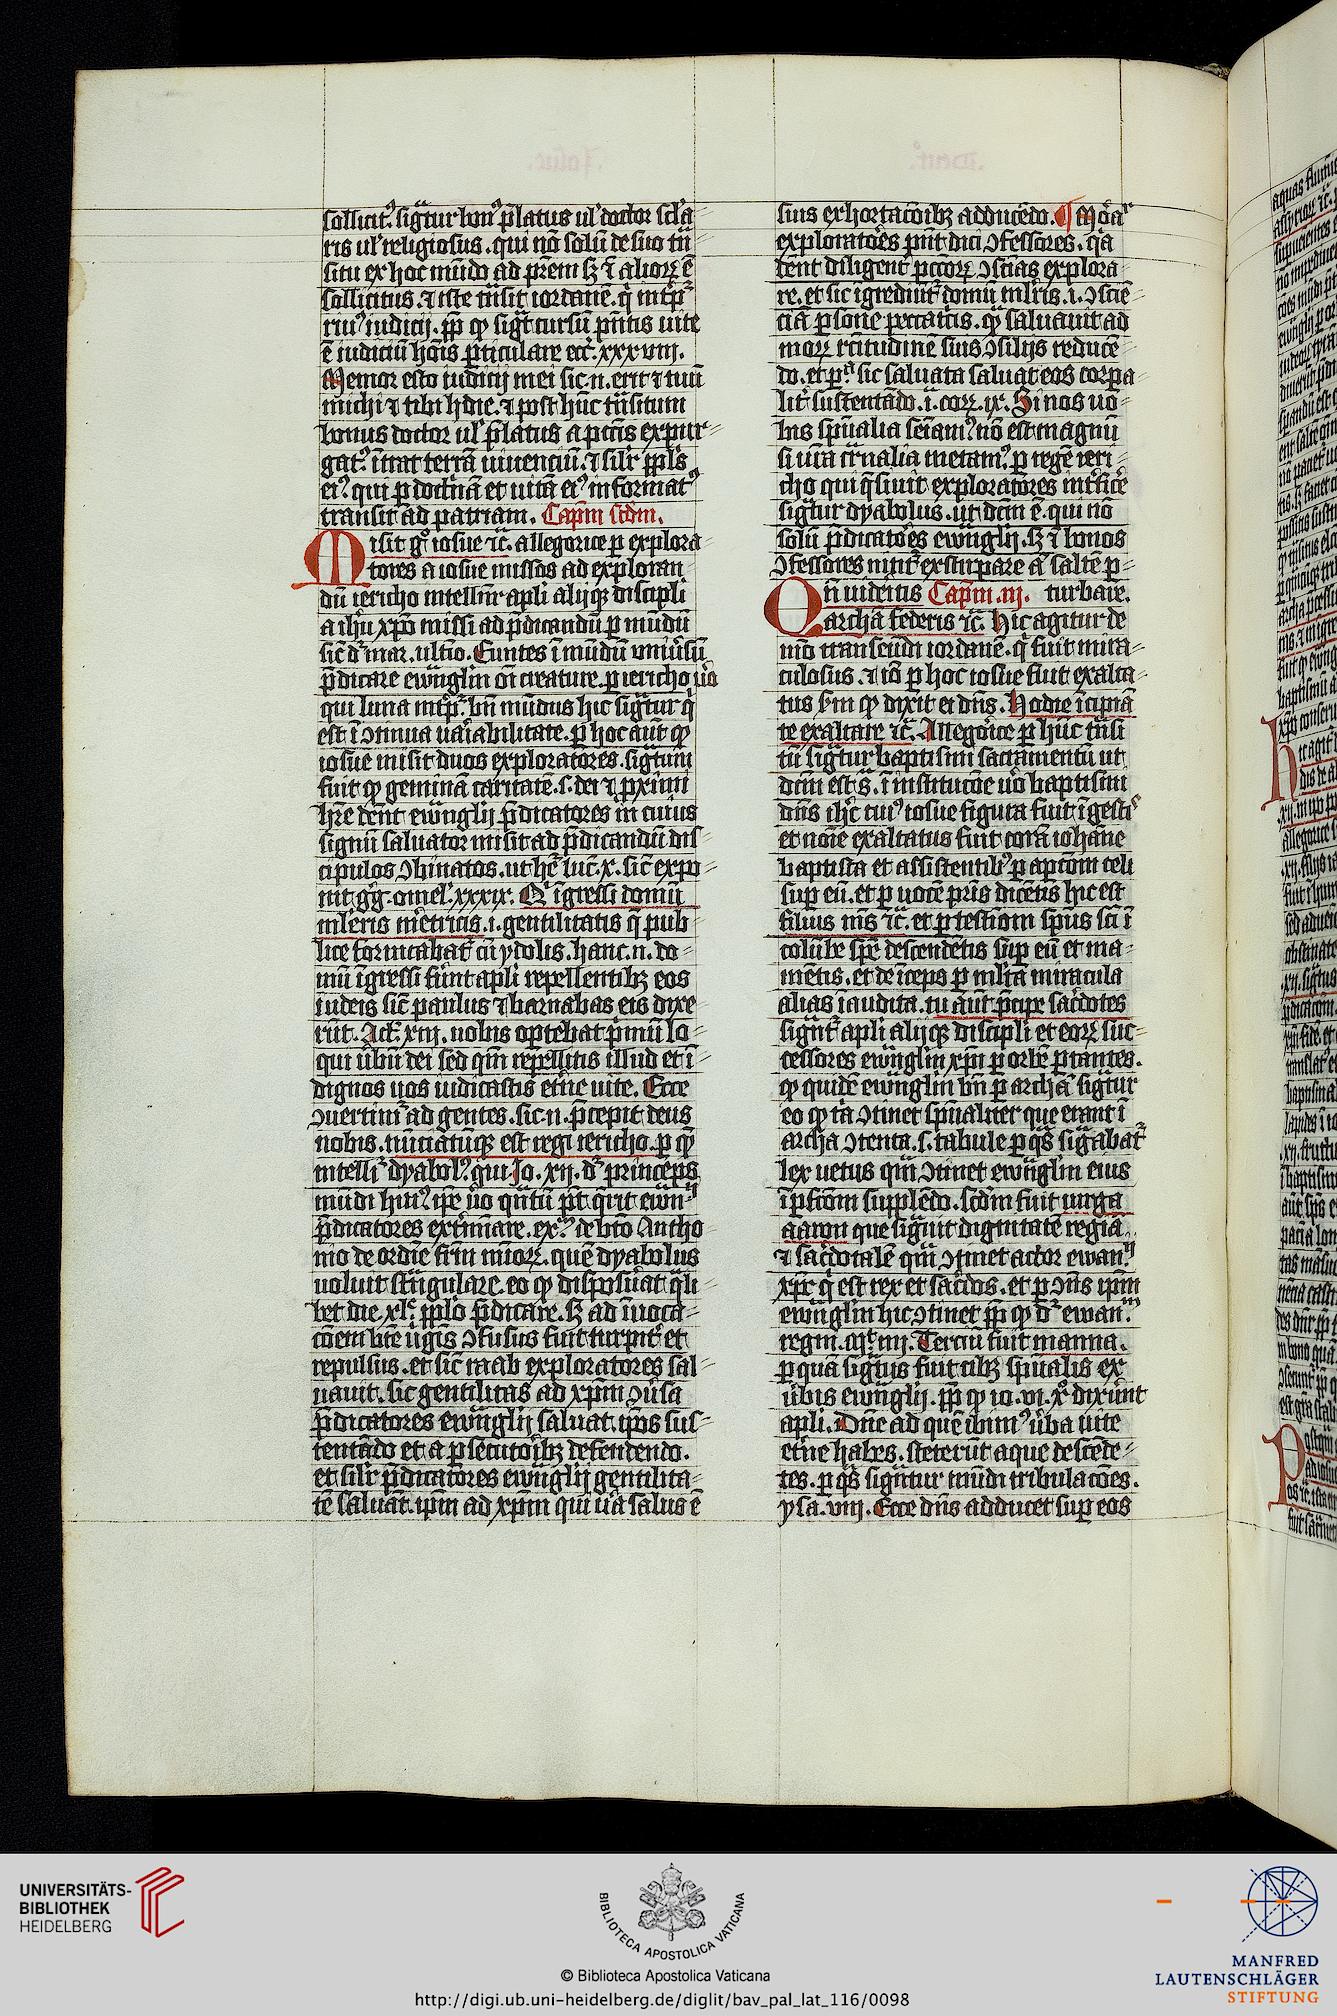 sollicit᷒. sigtur bon᷒ p̄latus ul doctor scl̄a
ris ul religiosus. qui nō solū de suo tn̄
situ ex hoc mūdo ad prēm sꝫ ⁊ alioꝝ ē
sollicitus. ⁊ iste tn̄sit iordanē. q̄ int̄p̄r
riu᷒ iudicij. ꝓp̄ qꝫ sigt cursū pn̄tis uite
ē iudiciū hōīs ꝑticulare eccͭ. xxxviij.
Memor esto iudicij mei sic.n. erit ⁊ tuū
michi ⁊ tibi hdie. ⁊ post hūc tn̄situm
bonus doctor ul p̄latus a pctīs expur
gat᷒. īt̄rat terrā uiuenciū. ⁊ silr ppl̄s
ei᷒. qui ꝑ doctnā et uitā ei᷒ informat᷒
transit ad patriam. Capm scdm.
Misit gͦ iosue ⁊c̄. allegorice ꝑ explora
tores a iosue missos ad exploran
dū iericho intellnr apli alijqꝫ discipli
a ihu xpō missi ad p̄dicandū ꝑ mūdū
sic dr mar. ultīo. Euntes ī mūdū vniūsū
p̄dicare ewāglm oī creature. ꝑ iericho ūo
qui luna intp̄r bn̄ mūdus hic sigtur q̄
est ī ↄtinua uariabilitate. ꝑ hoc aūt qꝫ
iosue misit duos exploratores. sigtum
fuit qꝫ geminā caritatē. s. dei ⁊ pximi
hr̄e dent ewāglij p̄dicatores in cuius
signū saluator misit ad p̄dicandū dis
cipulos ↄbinatos. ut hr̄ luc. x. sic expo
nit gg̅. omel. xxxix. Qi īgressi domū
mlieris mētricis. i. gentilitatis q̄ pub
lice fornicabat̄ cū ydolis. hanc.n. do
mū īgressi fūnt apli repellentibꝫ eos
iudeis sic paulus ⁊ barnabas eis dixe
rūt. Act. xiij. uobis optebat pmū lo
qui ūbū dei sed qm̄ repellitis illud et ī
dignos uos iudicastis et̄ne uite. Ecce
ↄuertim̄r ad gentes. sic.n. p̄cepit deus
nobis. nūciatūqꝫ est regi iericho. ꝑ qm̄
intelli᷒ dyabol᷒. qui Jo. xij. dr princeps
mūdi hui᷒. ipe ūo qntū pt̄ qrit ewn̄
p̄dicatores extimare. ex᷒ de bto Antho
nio de ordīe frm mīoꝝ. quē dyabolus
uoluit stngulare. eo qꝫ disposūat qli
bet die xlͤ. pplo p̄dicare. sꝫ ad īuoca
cōem btē ūgis ↄfusus fuit turpit̄ et
repulsus. et sic raab exploratores sal
uauit. sic gentilitas ad xpm ↄūsa
p̄dicatores ewāglij saluat. ipos sus
tentādo et a ꝑsecutoribꝫ defendendo.
et silr p̄dicatores ewāglij gentilita
tē saluāt. ipm ad xpm qui ūa salus ē
suis exhortacōibꝫ adducēdo. ¶ Mōar
exploratōes pnt dici ↄfessores. qā
tent diligent̄ pctōꝝ ↄsciās explora
re. et sic īgrediūt̄ domū mlris. i. ↄsciē
ciā ꝑsone peccatcis. qꝫ saluauit ad
moꝝ rcitudinē suis ↄsilijs reducē
do. et ꝑᵃ sic saluata saluat eos corpa
lit̄ sustentādo. i. corꝝ. ix. Si nos uo
bis spūalia seiam᷒ nō est magnū
si ura carnalia metam᷒. ꝑ regē ieri
cho qui q̄siuit exploratores int̄ficē
sigtur dyabolus. ut dcm ē. qui nō
solū p̄dicatōes ewāglij. sꝫ ⁊ bonos
ↄfessores nitit̄ exstirpare ā saltē ꝑ
Qn̄ uideitis Capm .iij. turbare.
archā federis ⁊c̄. Hic agitur de
mō transeūdi iordanē. q̄ fuit mira
culosus. ⁊ iō ꝑ hoc iosue fuit exalta
tus sm̄ qꝫ dixit ei dn̄s. Hodie īcipiā
te exaltare ⁊c̄. Allegoīce ꝑ hūc tn̄si
tū sigtur baptismi sacramentū ut
dcm est s̄. ī institucōe ūo baptismi
dn̄s ihc cui᷒ iosue figura fuit īgestis
et noīe exaltatus fuit corā iohāne
baptista et assistentibꝫ ꝑ aptōm celi
sup eū. et ꝑ uocē pr̄is dicētis hic est
filius m̄s ⁊c̄. et ꝑ testiōm spūs sci ī
colūbe spē descendētis sup eū et ma
nētis. et de īceps ꝑ mltā miracula
alias īaudita. tu aūt p̄cipe sacdotes
signt̄ apli alijqꝫ discipli et eoꝝ suc
cessores ewāglm xpi ꝑ orbē portantes.
qꝫ quidē ewāglm bn̄ ꝑ archā sigtur
eo qꝫ ea ↄtinet spūaliter que erant ī
archa ↄtenta. s. tabule ꝑ qs sigabat̄
lex uetus qm̄ ↄtinet ewāglm eius
īpfcōm supplēdo. scdm fuit uirga
aaron que sigauit dignitatē regiā
⁊ sacdotalē qm̄ ↄtinet actor ewanͥ
xpc q̄ est rex et sacdos. et ꝑ ↄns ipm
ewāglm hic ↄtinet ꝓp̄ qꝫ dr ewan.
regni. mt. iiij. Terciū fuit manna.
ꝑ quā sigtus fuit cibꝫ spūalis ex
ūbis ewāglij. ꝓp̄ qꝫ io. vi. xͦ dixūnt
apli. Dn̄e ad quē ibim᷒ ūba uite
et̄ne habes. steterūt aque descēde
tes. ꝑ qs signtur mūdi tribulacōes.
ysa. viij. Ecce dn̄s adducet sup eos
UNIVERSITÄTS-
BIBLIOTHEK
HEIDELBERG
BIBLIOTECA APOSTOLICA VATICANA
© Biblioteca Apostolica Vaticana
http://digi.ub.uni-heidelberg.de/diglit/bav_pal_lat_116/0098
MANFRED
LAUTENSCHLÄGER
STIFTUNG